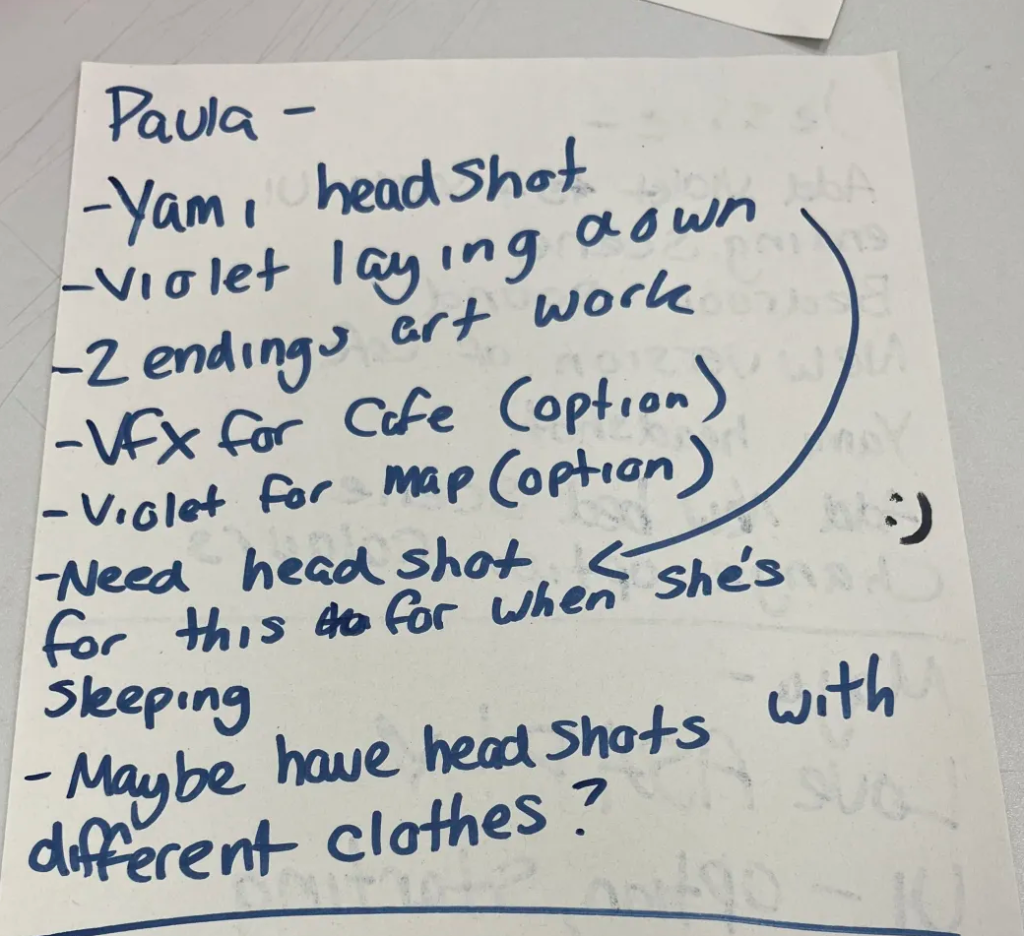 Paula -
- Yami headshot
- Violet laying down
- 2 endings art work
- VFX for Cafe (option)
- Violet for map (option)
- Need head shot
for this for when she's
sleeping
- Maybe have head shots with
different clothes?
:)